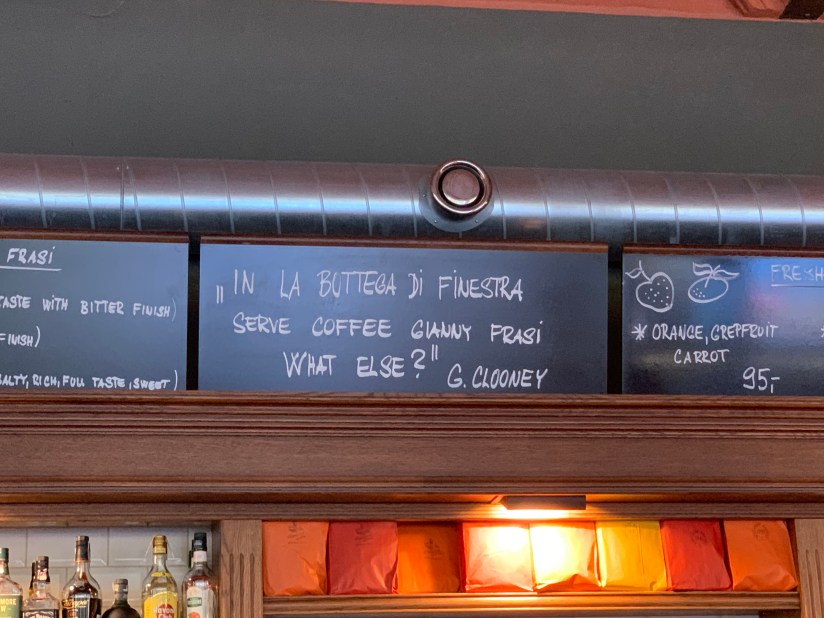 FRASI
TASTE WITH BITTER FINISH)
FINISH)
SALTY, RICH, FULL TASTE, SWEET)
„IN LA BOTTEGA Di FiNESTRA
SERVE COFFEE GIANNY FRASI
WHAT ELSE?"
G. CLOONEY
FRESH
* ORANGE, GREPFRUIT *
CARROT
95,-